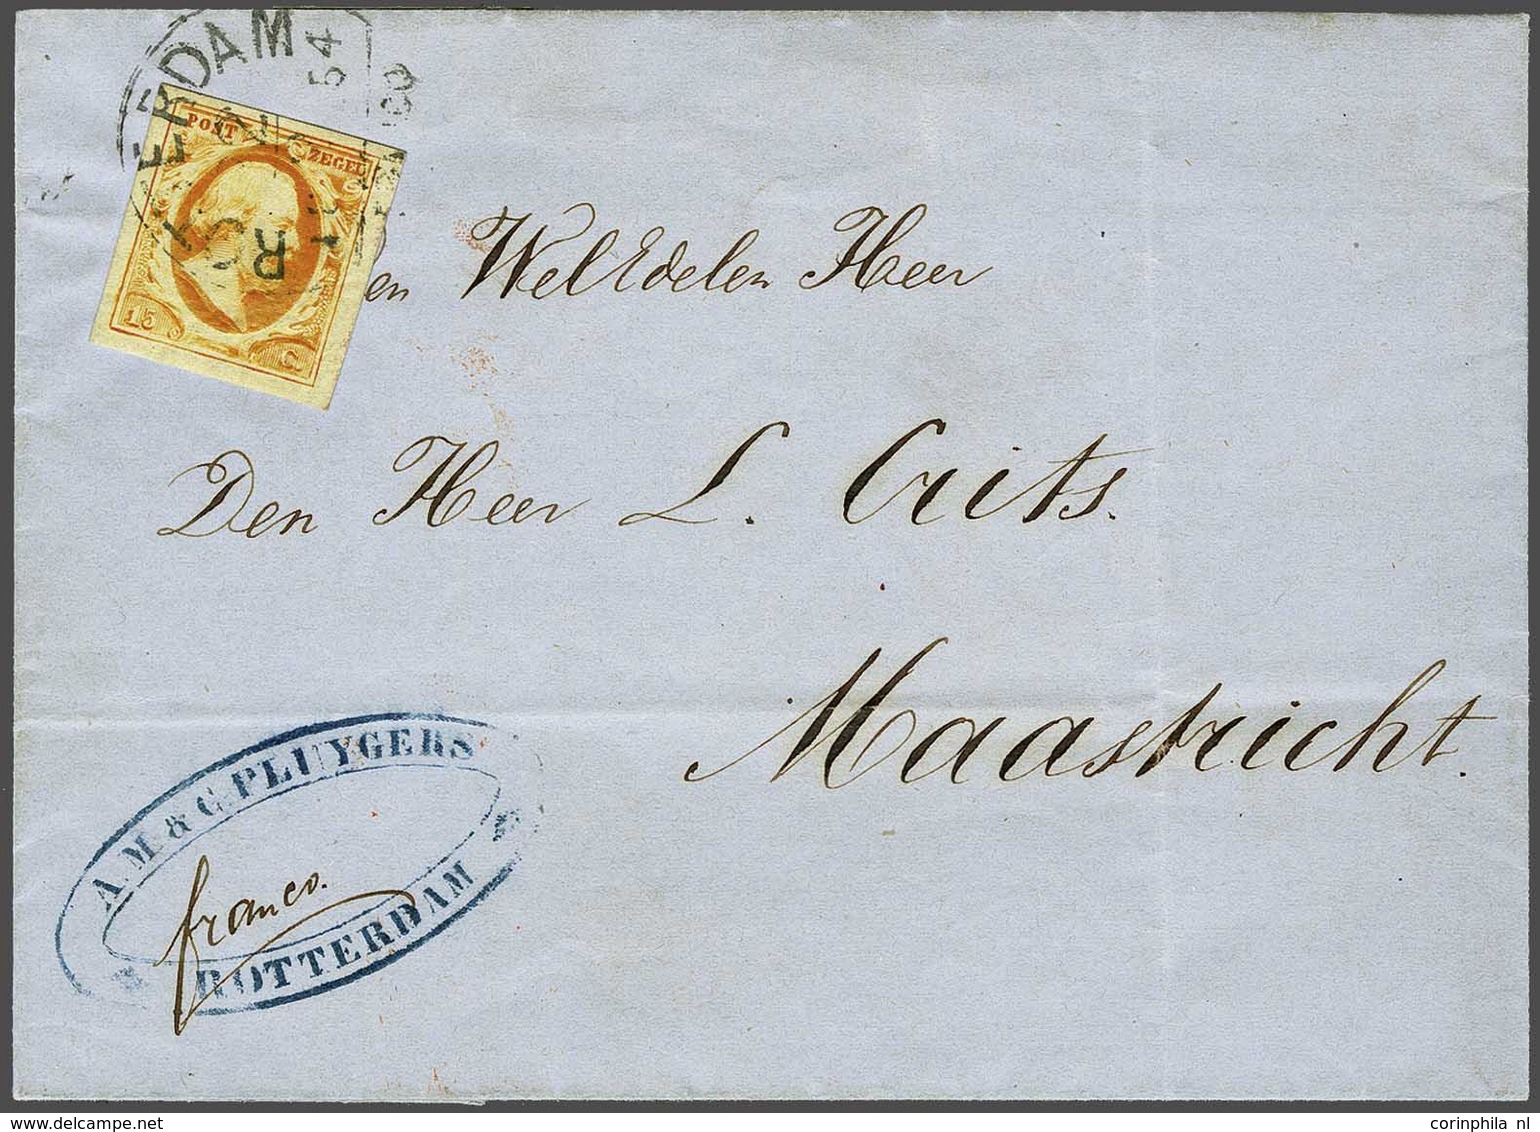 ROTTERDAM
54
POST ZEGEL
15 C.
en WelEdelen Heer
Den Heer L. Crits.
Maastricht.
A.M & C. PLUYGERS
franco.
ROTTERDAM
corinphila nl